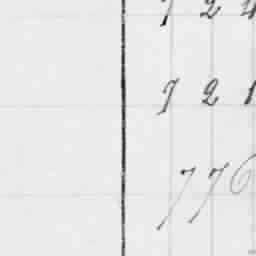 7 2
7 2 1
776